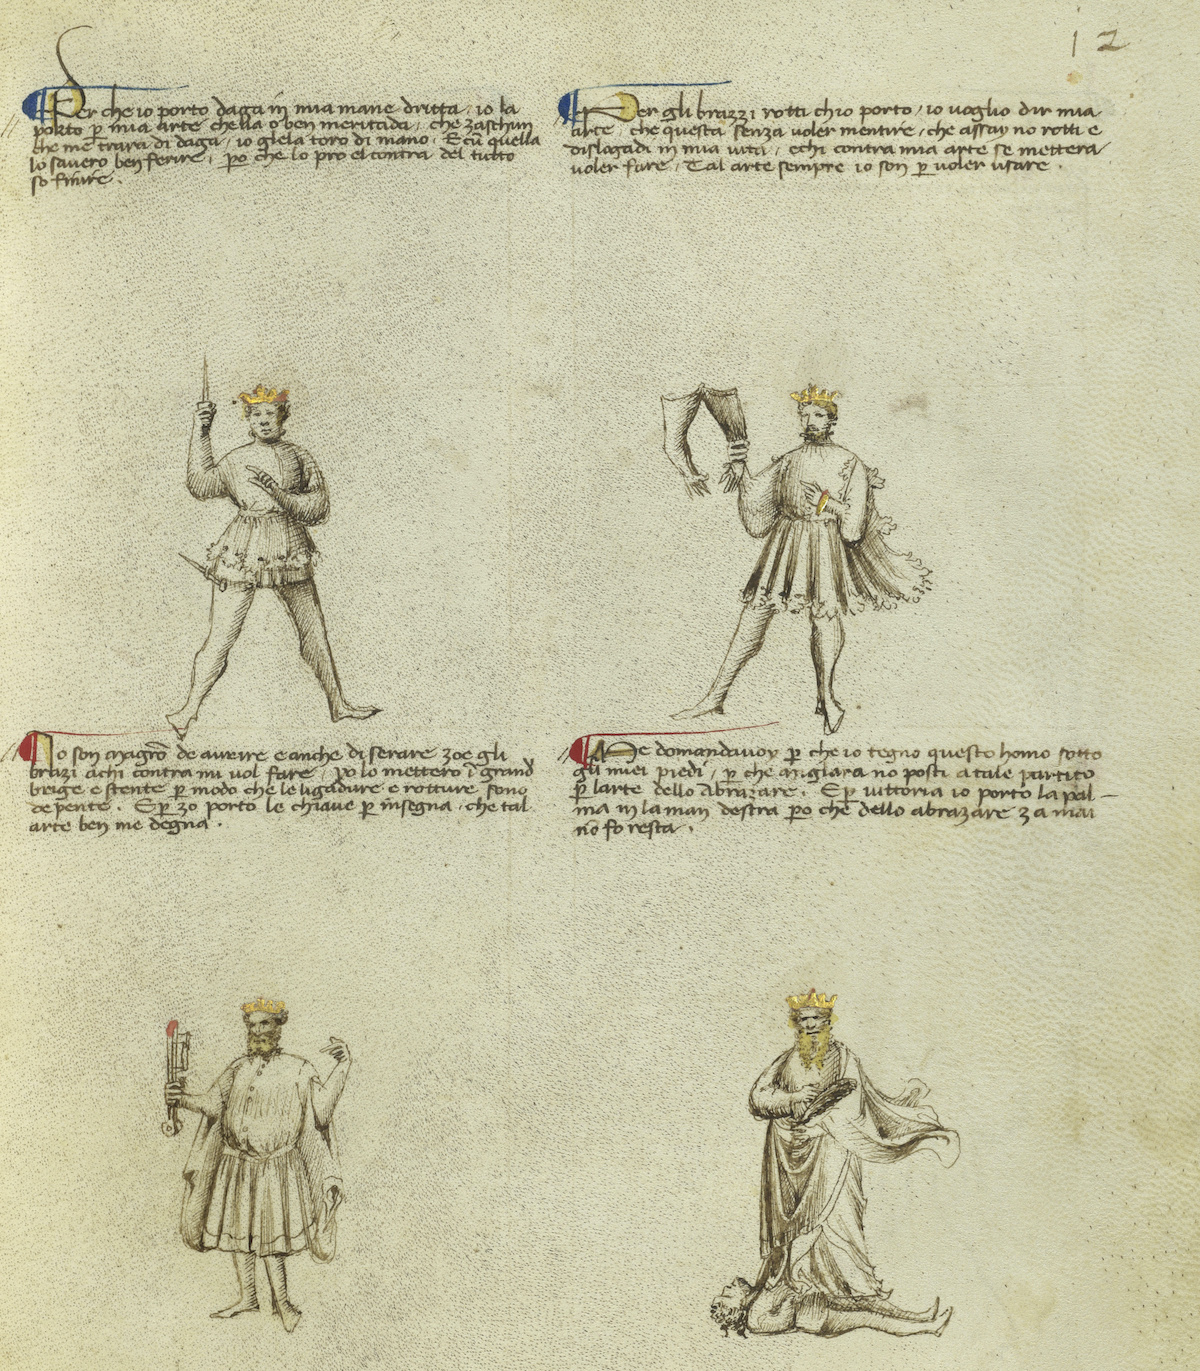 12
Per che io porto daga in mia mane dritta, io la
porto p mia arte chella o ben meritada, che zaschun
che me trara di daga, io glela toro di mano. E cū quella
lo savero ben ferire, po che lo pro el contra del tutto
so finire.
Per gli brazzi rotti ch io porto, io voglio dir mia
arte, che questa senza voler mentire, che assay no rotti e
dislogadi in mia vita, e chi contra mia arte se mettera
voler fare, Tal arte sempre io son p voler usare.
Io son magrō de avrire e anche di serare zoe gli
brazi a chi contra mi vol fare, po lo mettero ī grand
brige e stente p modo che le ligadure e rotture sono
depente. E p zo porto le chiave p insegna, che tal
arte ben me degna.
Me domandavoy p che io tegno questo homo sotto
gli miei piedi, p che migliara no posti a tale partito
p larte dello Abrazare. E p vittoria io porto la pal-
ma in la man destra po che dello abrazare za mai
nō fo resta.